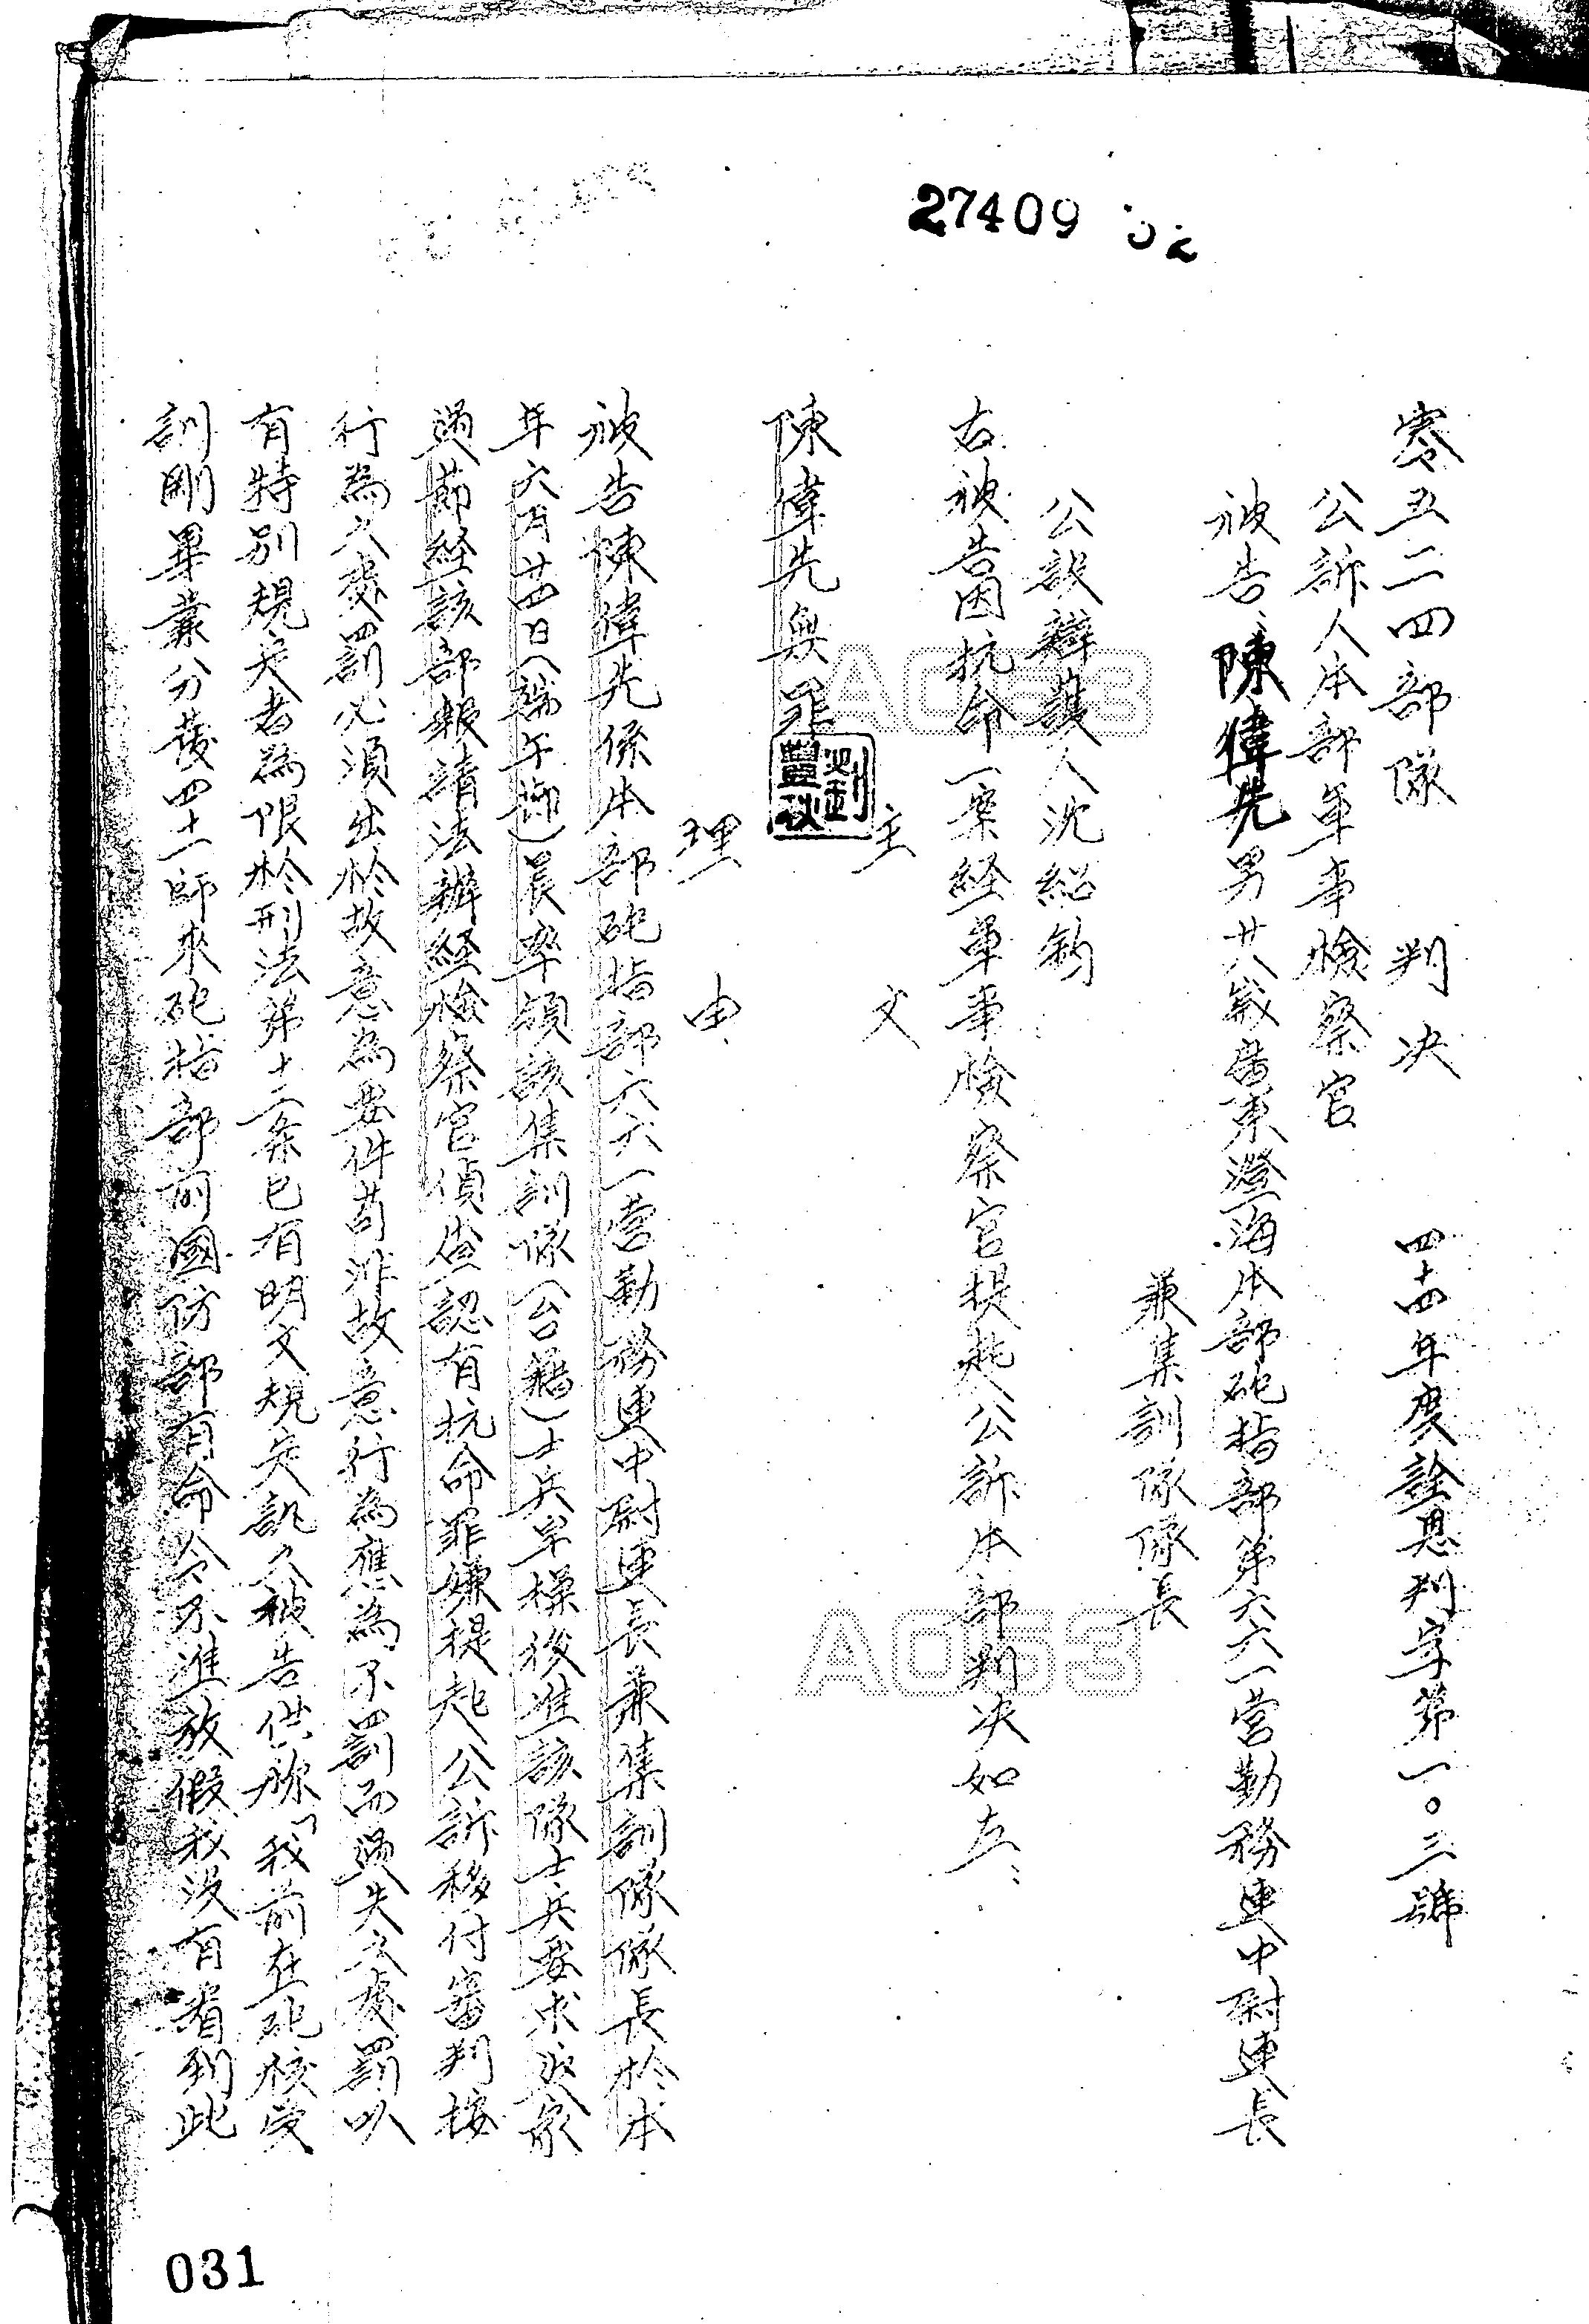 27409
零五二四部隊 判決 四十四年度詮恩判字第一〇三號
公訴人本部軍事檢察官
被告、陳偉先男廿八歲廣東澄海本部砲指部第六六一營勤務連中尉連長
兼集訓隊隊長
公設辯護人沈紹鈞
右被告因抗命一案経軍事檢察官提起公訴本部判决如左:
主 文
陳偉先無罪
劉豊秋
理 由
被告陳偉先係本部砲指部六六一营勤務連中尉連長兼集訓隊隊長於本
年六月廿四日(端午節)晨率領該集訓隊(台籍)士兵早操後准該隊士兵要求返家
過節経該部報請法辦経檢察官偵查認有抗命罪嫌提起公訴移付審判按
行為之處罰必須出於故意為要件苟非故意行為應為不罰而過失之處罰以
有特別規定者為限於刑法第十二条已有明文規定訊之被告供称「我前在砲校受
訓剛畢業分發四十一師來砲指部前國防部有命令不准放假我没有看到此
031
A053
A053